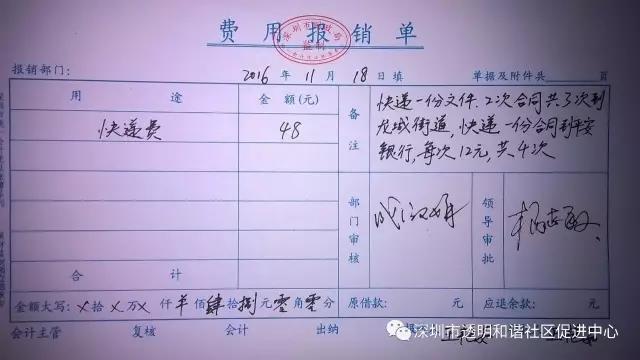 费用报销单
深圳市财政局
监制
报销部门： 2016年11月18日填 单据及附件共 页
用途 金额(元) 备注
快递费 48
快递一份文件、2次合同共3次到
龙城街道，快递一份合同到平安
银行，每次12元，共4次
部门审核 领导审批
合计
金额大写：×拾×万×仟羊佰肆拾捌元零角零分 原借款： 元 应退余款： 元
会计主管 复核 会计 出纳
深圳市透明和谐社区促进中心